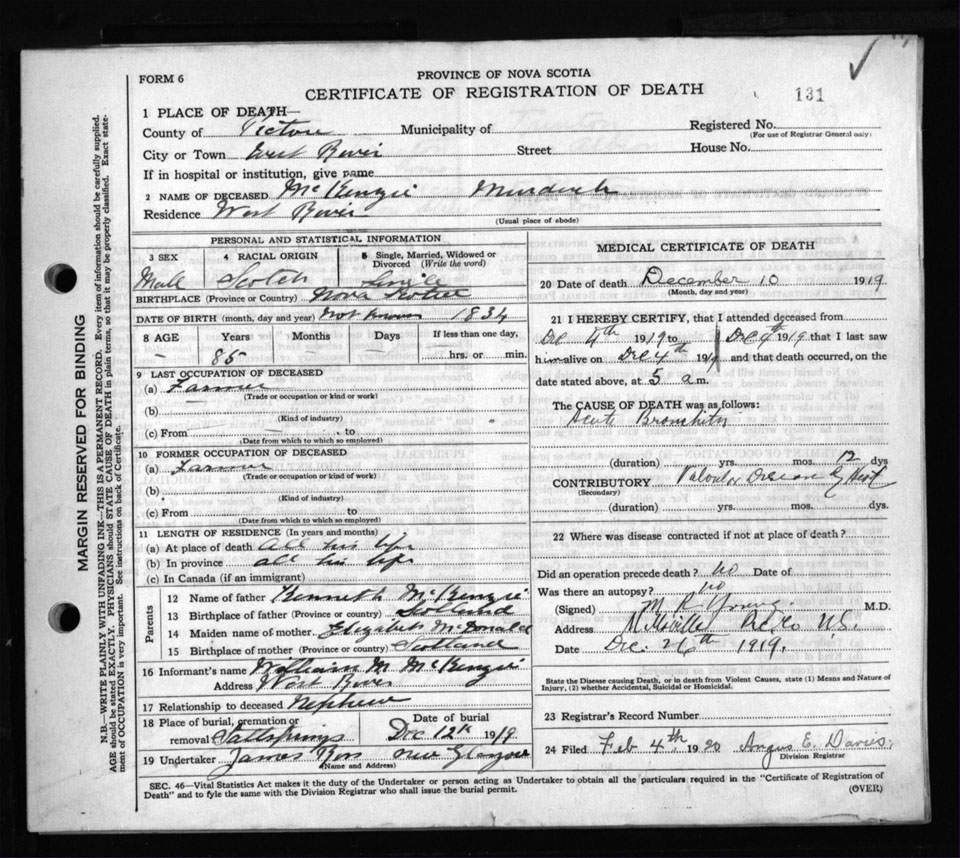 FORM 6
PROVINCE OF NOVA SCOTIA
CERTIFICATE OF REGISTRATION OF DEATH
131
1 PLACE OF DEATH—
County of Pictou Municipality of Registered No.
(For use of Registrar General only)
City or Town West River Street House No.
If in hospital or institution, give name
2 NAME OF DECEASED McKenzie Murdoch
Residence West River
(Usual place of abode)
PERSONAL AND STATISTICAL INFORMATION
3 SEX 4 RACIAL ORIGIN 5 Single, Married, Widowed or Divorced (Write the word)
Male Scotch Single
BIRTHPLACE (Province or Country) Nova Scotia
DATE OF BIRTH (month, day and year) not known 1834
8 AGE Years Months Days If less than one day,
— 85 — — hrs. or min.
9 LAST OCCUPATION OF DECEASED
(a) Farmer
(Trade or occupation or kind or work)
(b)
(Kind of industry)
(c) From to
(Date from which to which so employed)
10 FORMER OCCUPATION OF DECEASED
(a) Farmer
(Trade or occupation or kind of work)
(b)
(Kind of industry)
(c) From to
(Date from which to which so employed)
11 LENGTH OF RESIDENCE (In years and months)
(a) At place of death all his life
(b) In province all his life
(c) In Canada (if an immigrant)
Parents
12 Name of father Kenneth McKenzie
13 Birthplace of father (Province or country) Scotland
14 Maiden name of mother Elizabeth McDonald
15 Birthplace of mother (Province or country) Scotland
16 Informant's name William M McKenzie
Address West River
17 Relationship to deceased Nephew
18 Place of burial, cremation or removal Saltsprings Date of burial Dec 12th 1919
19 Undertaker James Ross New Glasgow
(Name and Address)
MEDICAL CERTIFICATE OF DEATH
20 Date of death December 10 1919
(Month, day and year)
21 I HEREBY CERTIFY, that I attended deceased from
Dec 4th 1919 to Dec 4th 1919 that I last saw
him alive on Dec 4th 1919 and that death occurred, on the
date stated above, at 5 a m.
The CAUSE OF DEATH was as follows:
Acute Bronchitis
(duration) yrs. mos. 12 dys
CONTRIBUTORY Valvular Disease of Heart
(Secondary)
(duration) yrs. mos. dys.
22 Where was disease contracted if not at place of death?
Did an operation precede death? No Date of
Was there an autopsy? No
(Signed) M R Young M.D.
Address
Date Dec. 26th 1919.
State the Disease causing Death, or in death from Violent Causes, state (1) Means and Nature of
Injury, (2) whether Accidental, Suicidal or Homicidal.
23 Registrar's Record Number
24 Filed Feb 4th 1920 Angus E. Davies
Division Registrar
SEC. 46—Vital Statistics Act makes it duty of the Undertaker or person acting as Undertaker to obtain all the particulars required in the "Certificate of Registration of
Death" and to fyle the same with the Division Registrar who shall issue the burial permit. (OVER)
MARGIN RESERVED FOR BINDING
N.B.—WRITE PLAINLY WITH UNFADING INK—THIS IS A PERMANENT RECORD. Every item of information should be carefully supplied.
AGE should be stated EXACTLY. PHYSICIANS should STATE CAUSE OF DEATH in plain terms, so that it may be properly classified. Exact state-
ment of OCCUPATION is very important. See instructions on back of Certificate.